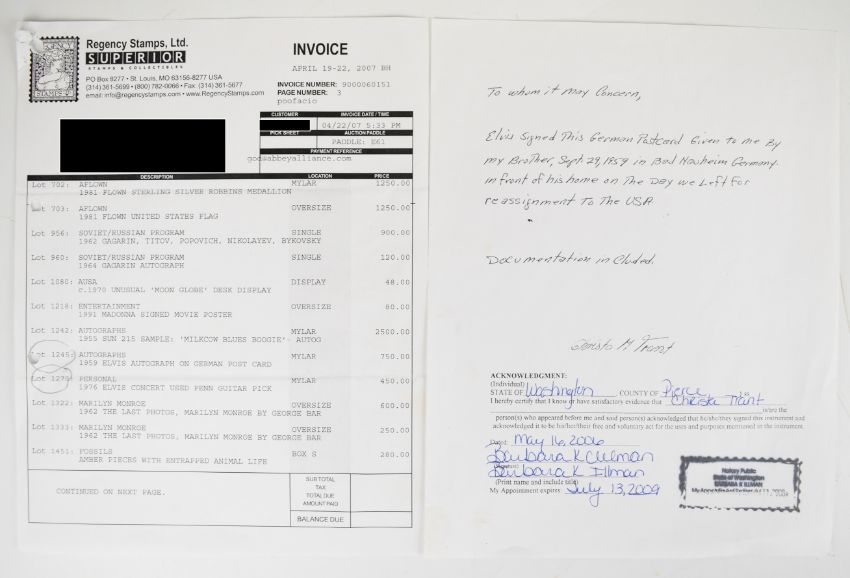 REGENCY
STAMPS
Regency Stamps, Ltd.
SUPERIOR
STAMPS & COLLECTIBLES
PO Box 8277 • St. Louis, MO 63156-8277 USA
(314) 361-5699 • (800) 782-0066 • Fax: (314) 361-5677
email: info@regencystamps.com • www.RegencyStamps.com
INVOICE
APRIL 19-22, 2007 BH
INVOICE NUMBER: 9000060151
PAGE NUMBER: 3
poofacio
CUSTOMER INVOICE DATE / TIME
04/22/07 5:33 PM
PICK SHEET AUCTION PADDLE
PADDLE: E61
PAYMENT REFERENCE
god@abbeyalliance.com
DESCRIPTION LOCATION PRICE
Lot 702: AFLOWN MYLAR 1250.00
1981 FLOWN STERLING SILVER ROBBINS MEDALLION
Lot 703: AFLOWN OVERSIZE 1250.00
1981 FLOWN UNITED STATES FLAG
Lot 956: SOVIET/RUSSIAN PROGRAM SINGLE 900.00
1962 GAGARIN, TITOV, POPOVICH, NIKOLAYEV, BYKOVSKY
Lot 960: SOVIET/RUSSIAN PROGRAM SINGLE 120.00
1964 GAGARIN AUTOGRAPH
Lot 1080: AUSA DISPLAY 48.00
c.1970 UNUSUAL 'MOON GLOBE' DESK DISPLAY
Lot 1218: ENTERTAINMENT OVERSIZE 80.00
1991 MADONNA SIGNED MOVIE POSTER
Lot 1242: AUTOGRAPHS MYLAR 2500.00
1955 SUN 215 SAMPLE: 'MILKCOW BLUES BOOGIE'- AUTOG
Lot 1245: AUTOGRAPHS MYLAR 750.00
1959 ELVIS AUTOGRAPH ON GERMAN POST CARD
Lot 1275: PERSONAL MYLAR 450.00
1976 ELVIS CONCERT USED PENN GUITAR PICK
Lot 1322: MARILYN MONROE OVERSIZE 600.00
1962 THE LAST PHOTOS, MARILYN MONROE BY GEORGE BAR
Lot 1333: MARILYN MONROE OVERSIZE 250.00
1962 THE LAST PHOTOS, MARILYN MONROE BY GEORGE BAR
Lot 1451: FOSSILS BOX S 280.00
AMBER PIECES WITH ENTRAPPED ANIMAL LIFE
CONTINUED ON NEXT PAGE.
SUBTOTAL
TAX
TOTAL DUE
AMOUNT PAID
BALANCE DUE
To whom it may Concern,
Elvis Signed This German Postcard Given to me By
my Brother, Sept 29, 1959 in Bad Nauheim Germany.
in front of his home on The Day we Left for
reassignment To The USA
Documentation in Cluded.
Christa M Trant
ACKNOWLEDGMENT:
(Individual)
STATE OF Washington COUNTY OF Pierce } ss
I hereby certify that I know or have satisfactory evidence that Christa Trant
is/are the
person(s) who appeared before me and said person(s) acknowledged that he/she/they signed this instrument and
acknowledged it to be his/her/their free and voluntary act for the uses and purposes mentioned in the instrument.
Dated May 16, 2006
Barbara K Illman
(Signature)
Barbara K Illman
(Print name and include title)
My Appointment expires July 13, 2009
Notary Public
State of Washington
BARBARA K ILLMAN
My Appointment Expires Jul 13, 2009